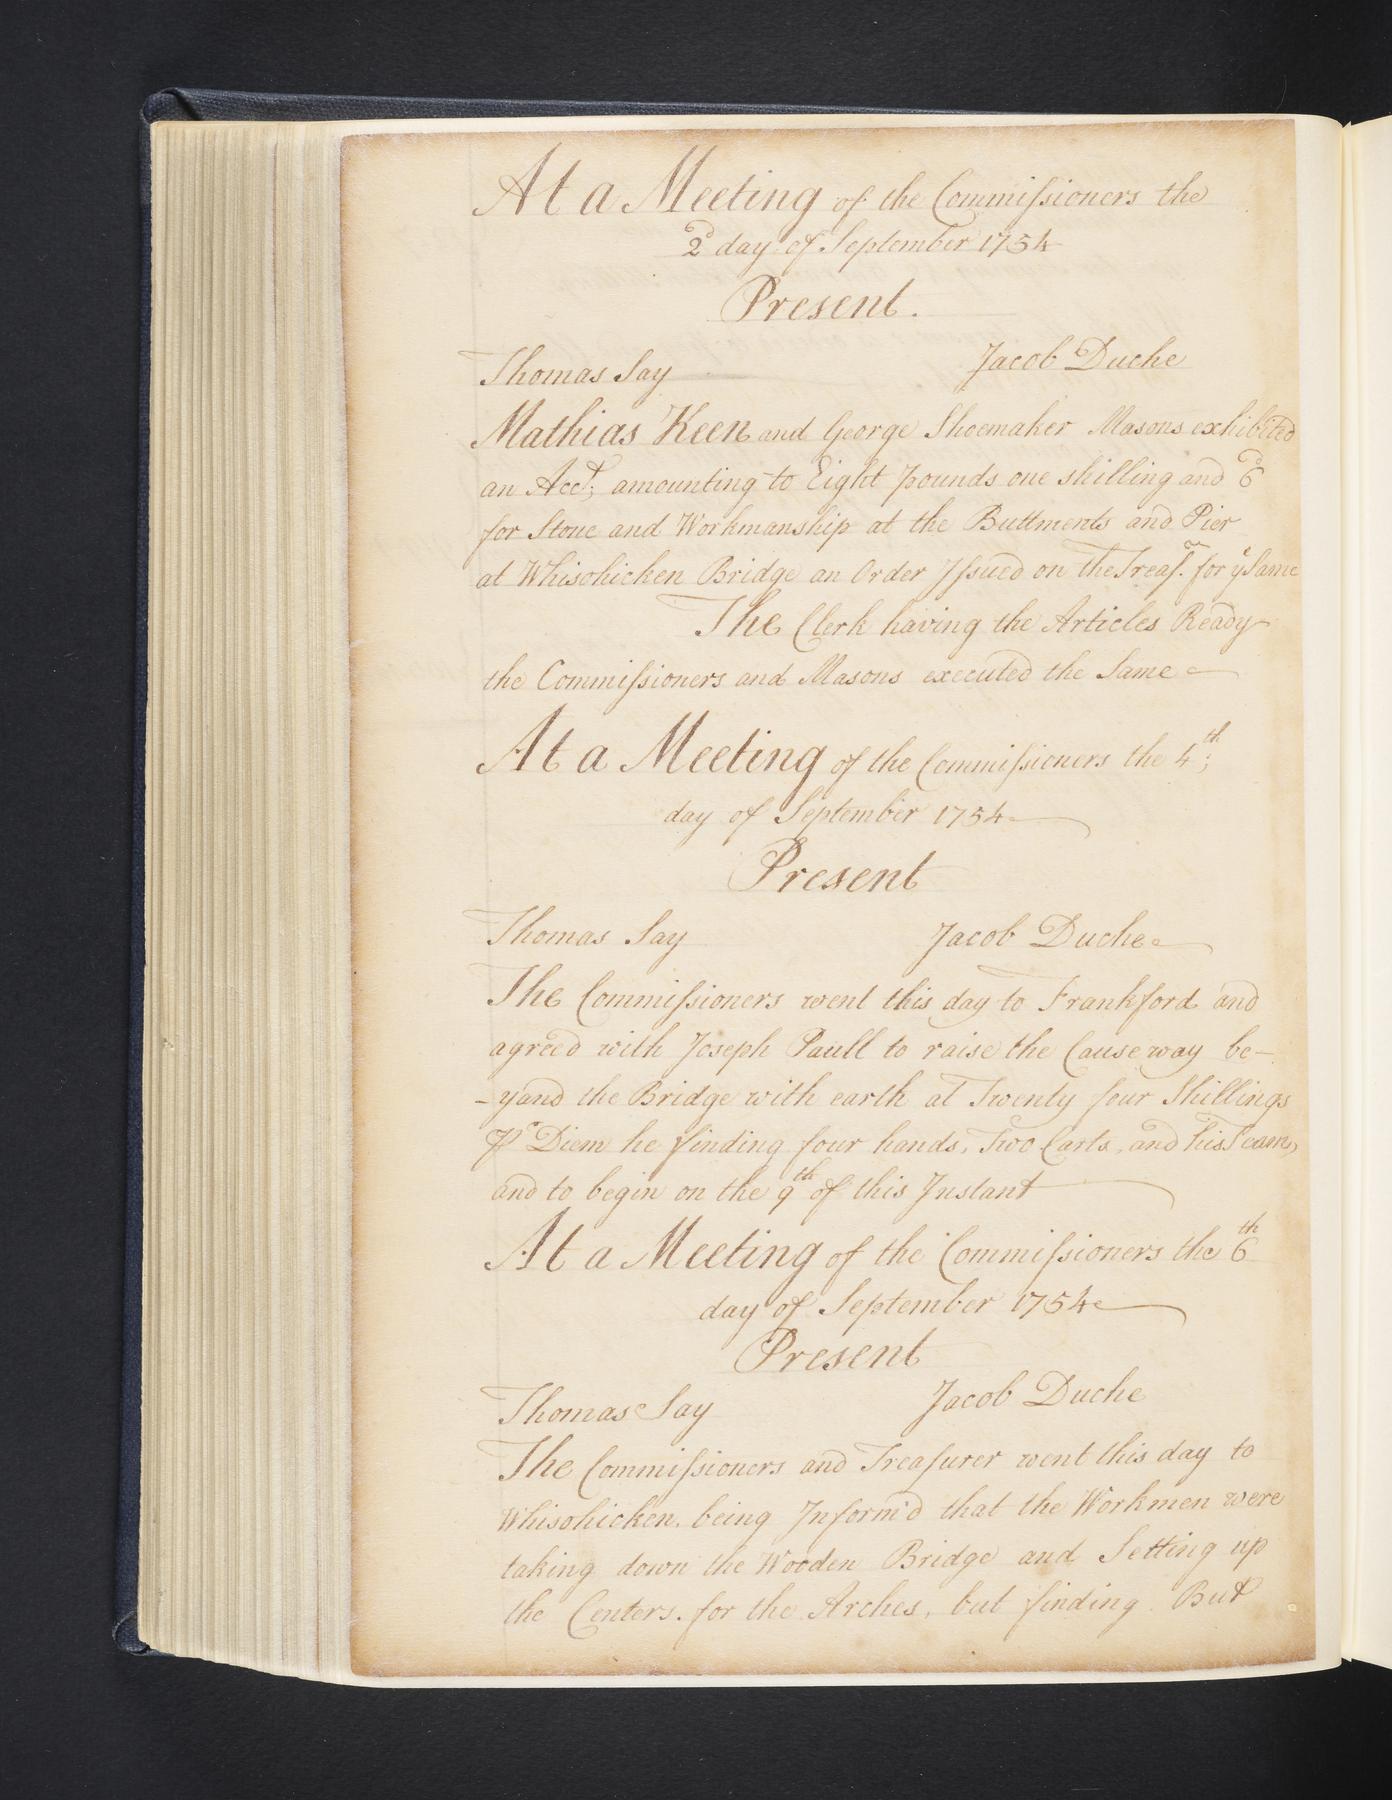 At a Meeting of the Commissioners the
2d day of September 1754
Present.
Thomas Say Jacob Duche
Mathias Keen and George Shoemaker Masons exhibited
an Acct; amounting to Eight pounds one shilling and 6d
for Stone and Workmanship at the Buttments and Pier
at Whisohicken Bridge an Order Issued on the Treasr. for ye Same
The Clerk having the Articles Ready
the Commissioners and Masons executed the Same
At a Meeting of the Commissioners the 4th;
day of September 1754
Present
Thomas Say Jacob Duche
The Commissioners went this day to Frankford and
agreed with Joseph Paull to raise the Causeway be-
-yand the Bridge with earth at Twenty four Shillings
Pr Diem he finding four hands, Two Carts, and his Team,
and to begin on the 9th of this Instant
At a Meeting of the Commissioners the 6th
day of September 1754
Present
Thomas Say Jacob Duche
The Commissioners and Treasurer went this day to
Whisohicken. being Inform'd that the Workmen were
taking down the Wooden Bridge and Setting up
the Centers. for the Arches, but finding But